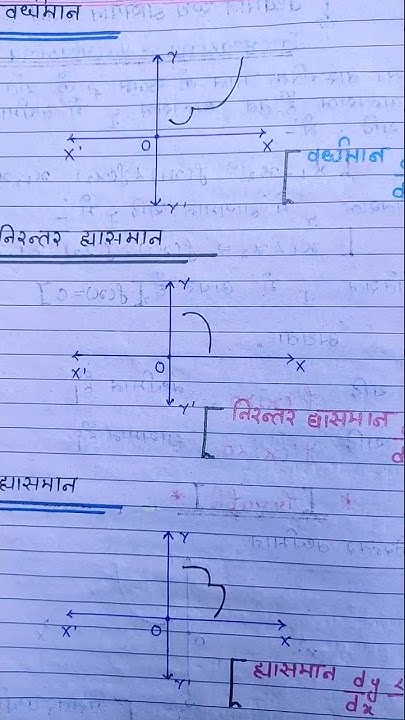 वर्धमान
Y
X' O X
वर्धमान
Y'
निरन्तर ह्यासमान
Y
X' O X
Y'
निरन्तर ह्यासमान
ह्यासमान
Y
X' O X
Y'
ह्यासमान dy/dx ≤